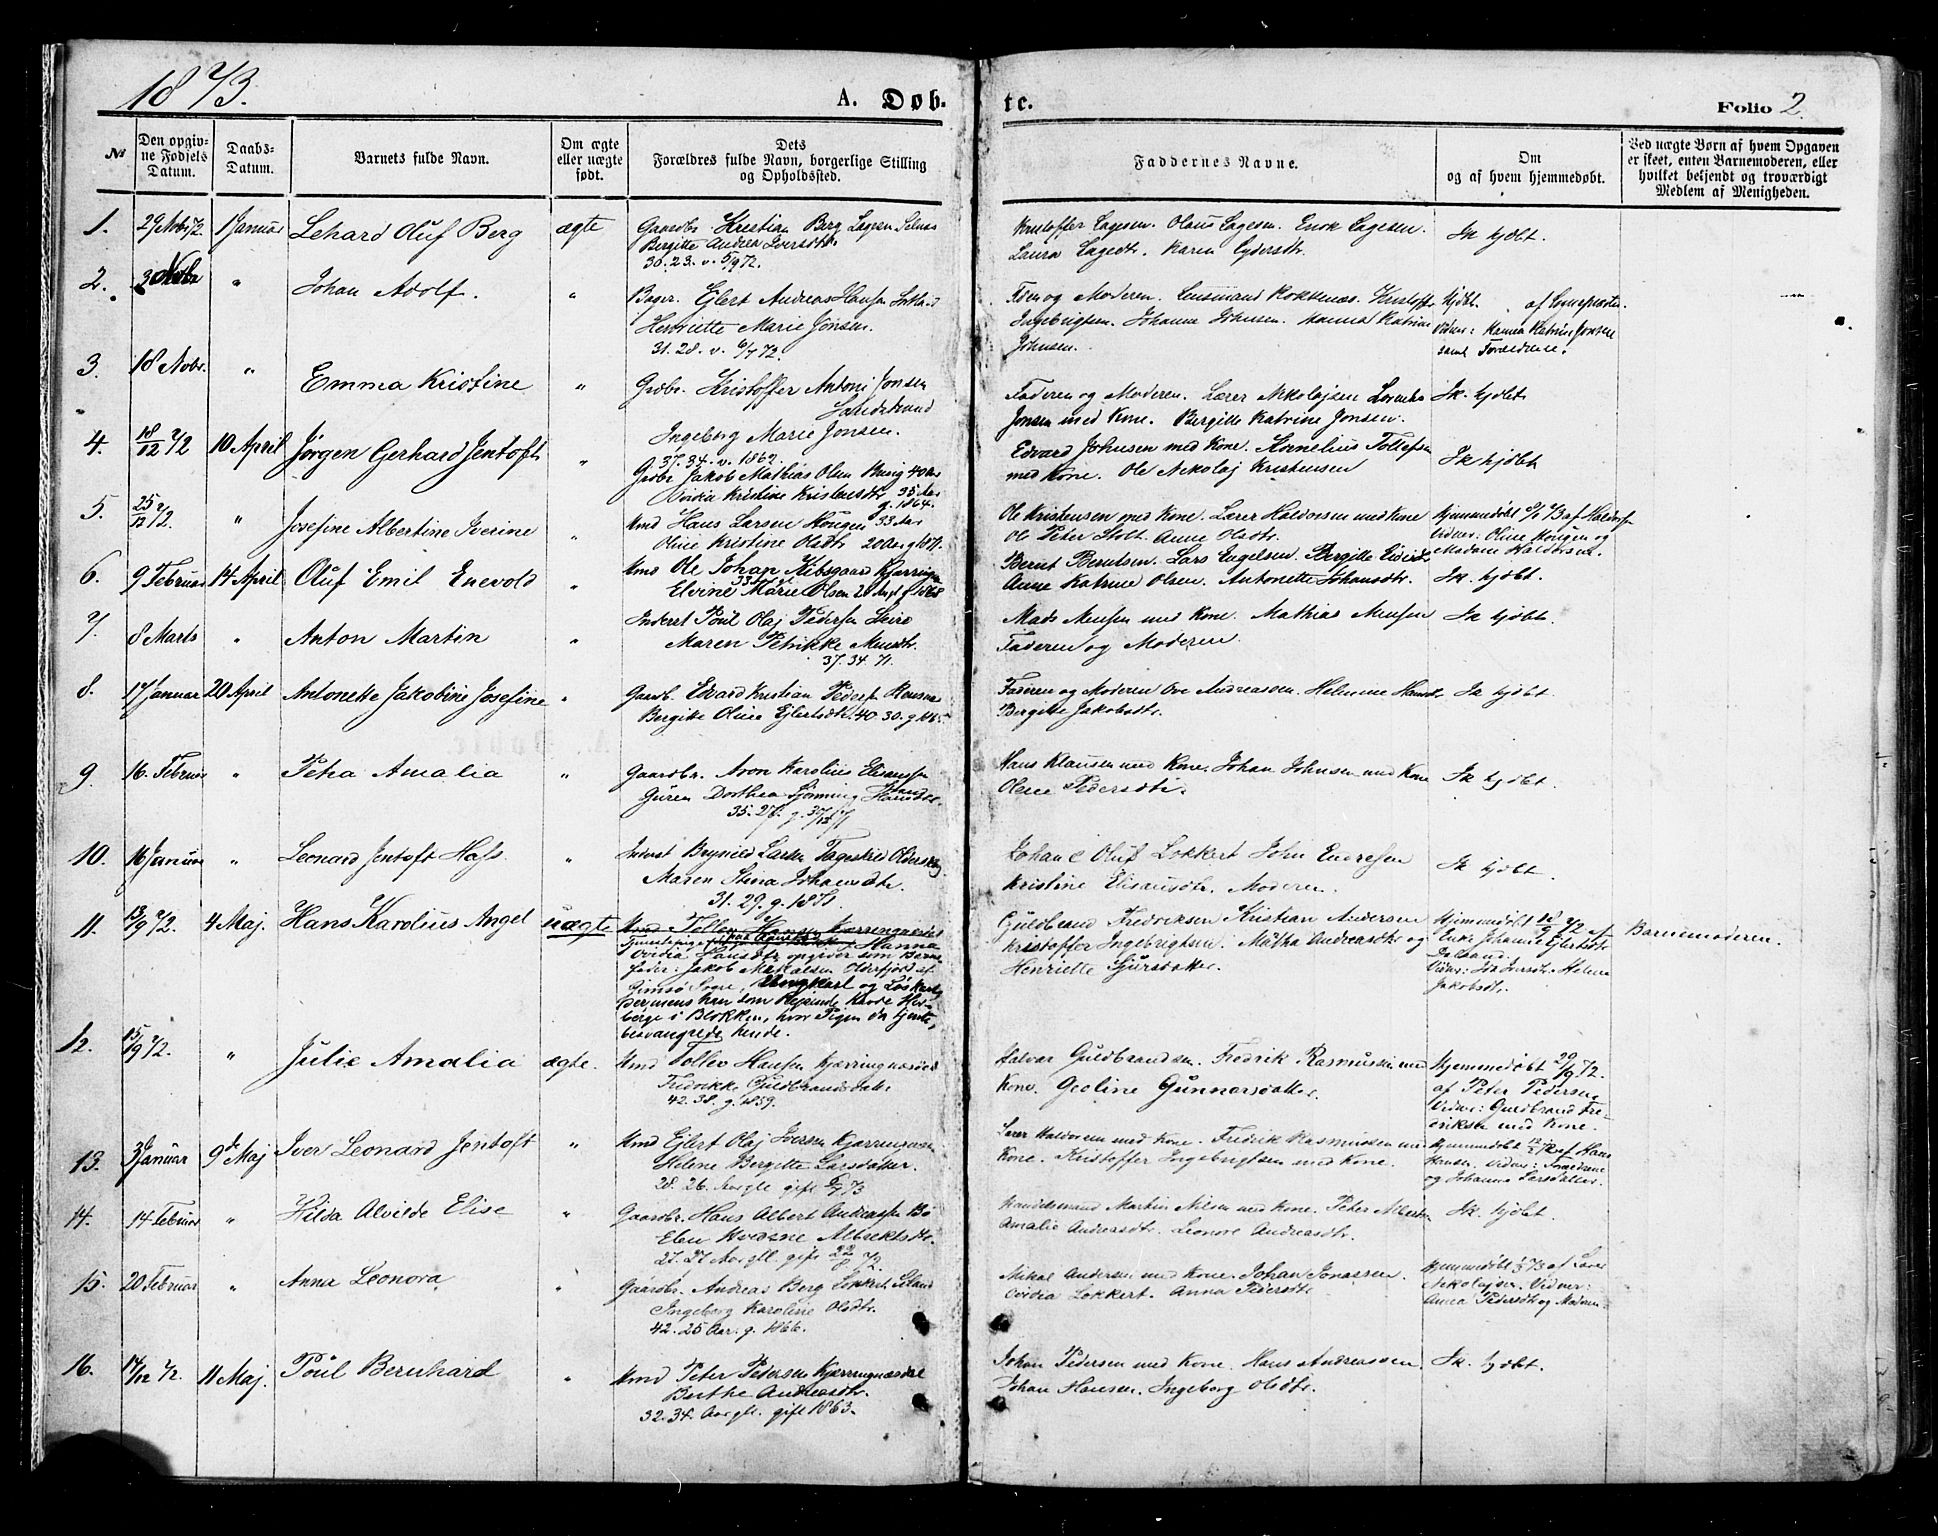 1873.
A. Døb-
te.
Folio 2.
№
Den opgiv-
ne Fødsels
Datum.
Daabs-
Datum.
Barnets fulde Navn.
Om ægte
eller uægte
født.
Dets
Forældres fulde Navn, borgerlige Stilling
og Opholdssted.
Faddernes Navne.
Om
og af hvem hjemmedøbt.
Ved uægte Børn af hvem Opgaven
er skeet, enten Barnemoderen, eller
hvilket bekjendt og troværdigt
Medlem af Menigheden.
1. 29 Nov 72. 1 Januar Lehard Oluf Berg ægte
Gaardbr. Kristian Berg Lagesen Selnæs
Bergitte Andrea Iversdtr
30. 23. v. 5/9 72.
Kristoffer Lagesen. Olaus Lagesen. Enok Lagesen.
Laura Lagedtr. Karen
Ik hjdbt.
2. Novbr " Johan Adolf. "
Bager. Ejlert Andreas Hansen
Henriette Marie Jonsen.
31. 28. v. 6/7 72.
Faderen og Moderen. Lensmand Kristoffer
Ingebrigtsen. Johanna Johnsen. Hanna Katrine
Johnsen.
Hjdbt. af
Vidner: Hanna Katrine Jonsen
samt Forældrene.
3. 18 Novbr. " Emma Kristine "
Grdbr. Kristoffer Antoni Jonsen
Sandstrand
Ingeborg Marie Jonsen.
37. 34. v. 1869.
Faderen og Moderen. Lærer Nikolajsen
Jonsen med Kone. Bergitte Katrine Jonsen.
Ik. hjdbt
4. 18/12 72 10 April Jörgen Gerhard Jentoft "
Grdbr Jakob Mathias Olsen 40 Aar
Ovidia Kristine Kristensdtr 35 Aar
g. 1864.
Edvard Johnsen med Kone. Kornelius Tollefsen
med Kone. Ole Nikolaj Kristensen
Ik hjdbt
5. 25/12 72. " Josefine Albertine Iverine "
Hmd Hans Larsen Hougen 33 Aar
Oline Kristine Olsdtr 20 Aar g 1871.
Ole Kristensen med Kone. Lærer Haldorsen med Kone
Ole Peter Holt Anne Olsdtr.
Hjemmedøbt 9/1 73 af Haldorsen
Vidner: Oline Hougen og
Madame Haldorsen.
6. 9 Februar 14 April Oluf Emil Enevold "
Hmd Ole Johan Kibsgaard Kjerringnæs
Elvine Marie Olsen g 1868
Bernt Berntsen. Lars Engelsen. Bergitte
Anne Katrine Olsen. Antonette Johansdtr.
Ik. hjdbt.
7. 8 Marts " Anton Martin "
Inderst Povl Olaj Pedersen Leire
Maren Petrikke
37. 34. 71.
Mads Mensen med Kone. Mathias Mensen
Faderen og Moderen.
Ik hjdbt.
8. 17 Januar 20 April Antonette Jakobine Josefine "
Gaardb. Edvard Kristian Pedersen
Bergitte Oline Ejlertsdtr. 40. 30.
Faderen og Moderen Ove Andreassen. Helmine Hansdtr
Bergitte Jakobsdtr.
Ik hjdbt.
9. 16. Februar " Petra Amalia "
Gaardbr. Aron Karolius Elisæussen
Guren Dorthea Hansdtr.
35. 28.
Hans Klausen med Kone. Johan Johnsen med Kone
Oline Pedersdtr.
Ik hjdbt.
10. 16 Januar " Leonard Jentoft Hass. "
Inderst Brynild Larsen
Maren Stina Johansdtr.
31. 29. g. 1871.
Johan Oluf Lokkert John Endresen
Kristine Elisæusdtr. Moderen.
Ik hjdbt.
11. 13/9 72. 4 Maj. Hans Karolius Angel uægte
Hmd Tollev Hansen Kjærringnæsdal
Hanna
Ovidia Hansdtr opgiver som Barne-
fader: Jakob Mikalsen Olderfjord af
Gimsø Sogn, Ungkarl og Løskarl,
Dermens han som Rejsende havde Her-
berge i Blokken, hvor Pigen da tjente,
besvangrede hende.
Guldbrand Fredriksen Kristian Andersen
Kristoffer Ingebrigtsen. Mätha Andreasdtr og
Henriette
Hjemmedøbt 18/9 72 af
Enke Johanna Ejlertsdtr
Vidner: Ida Iversdtr. Helene
Jakobsdtr.
Barnemoderen.
12. 15/9 72. " Julie Amalia ægte.
Hmd Tollev Hansen Kjærringnæsdal
Fredrikke Guldbrandsdatter
42. 38. g. 1859.
Halvar Guldbrandsen. Fredrik Rasmussen med
Kone. Geoline Gunnarsdatter.
Hjemmedøbt 29/9 72.
af Peter Pedersen.
Vidner: Guldbrand Fre-
driksen med Kone.
13. 3 Januar 9de Maj Iver Leonard Jentoft "
Hmd Ejlert Olaj Iversen Kjærringnæs
Helene Bergitte Larsdatter.
28. 26. Aar gle gift
Lærer Haldorsen med Kone. Fredrik Rasmussen med
Kone. Kristoffer Ingebrigtsen med Kone.
Hjemmedøbt af Hans
Hansen. Vidner: Forældrene
og Johanna Larsdatter.
14. 14 Februar " Hilda Alvilde Elise "
Gaardbr. Hans Albert Andreassen Bø
Elen Albrektsdtr.
27. 27 Aar gl. gift 22/8 72.
Handelsmand Martin Nilsen med Kone. Peter
Amalie Andreasdtr. Leonore Andreasdtr.
Ik. hjdbt.
15. 20 Februar " Anna Leonora "
Gaardbr. Andreas Berg Lokkert Seland
Ingeborg Karoline Olsdtr.
42. 25 Aar. g. 1866.
Mikal Andersen med Kone. Johan Jonassen.
Ovidia Lokkert. Anna Pedersdtr.
Hjemmedøbt 73 af Lærer
Nikolajsen. Vidner:
Anna Pedersdtr og Moderen
16. 14/12 72. 11 Maj. Povl Bernhard "
Hmd Peter Pedersen Kjærringnæsdal
Berthe Andreasdtr.
32. 34. Aar gl. gift 1863.
Johan Pedersen med Kone. Hans Andreassen.
Johan Hansen. Ingeborg Olsdtr.
Ik. hjdbt.